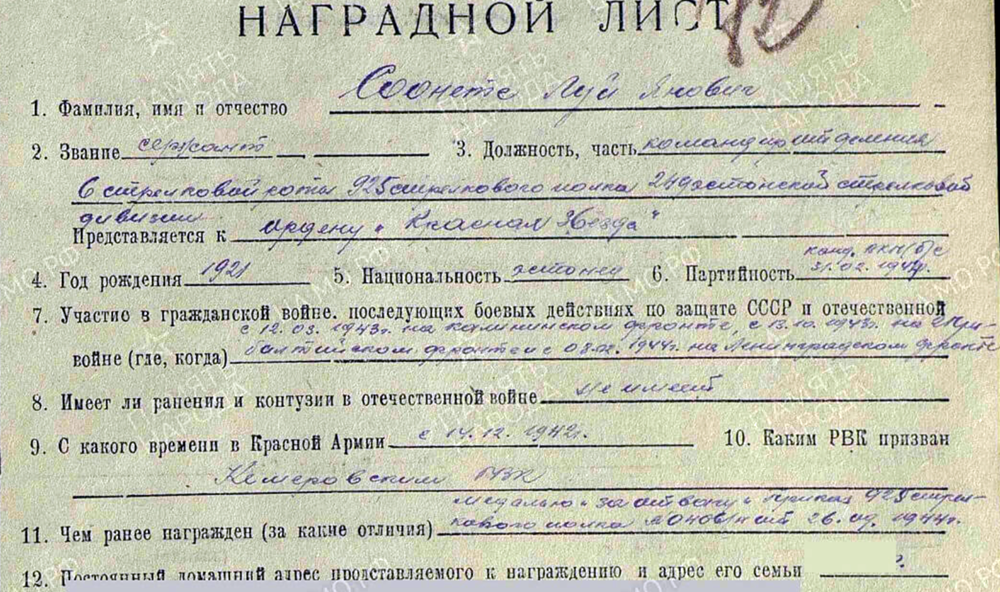 НАГРАДНОЙ ЛИСТ
1. Фамилия, имя и отчество Соонетс Луй Янович
2. Звание сержант 3. Должность, часть командир отделения
6 стрелковой роты 925 стрелкового полка 249 эстонской стрелковой
дивизии
Представляется к ордену „Красная Звезда"
канд. ВКП/б/ с
4. Год рождения 1921 5. Национальность эстонец 6. Партийность 1944г.
7. Участие в гражданской войне, последующих боевых действиях по защите СССР и отечественной
с 12.03.1943г. на Калининском фронте, с 13.10.1943г. на 2 При-
войне (где, когда) балтийском фронте и с 1944г. на Ленинградском фронте
8. Имеет ли ранения и контузии в отечественной войне не имеет
9. С какого времени в Красной Армии с 14.12.1942г. 10. Каким РВК призван
Кемеровским РВК
медалью „За отвагу" приказ 925 стрел-
11. Чем ранее награжден (за какие отличия) кового полка от 26.09.1944г.
12. Постоянный домашний адрес представляемого к награждению и адрес его семьи
ПАМЯТЬ НАРОДА